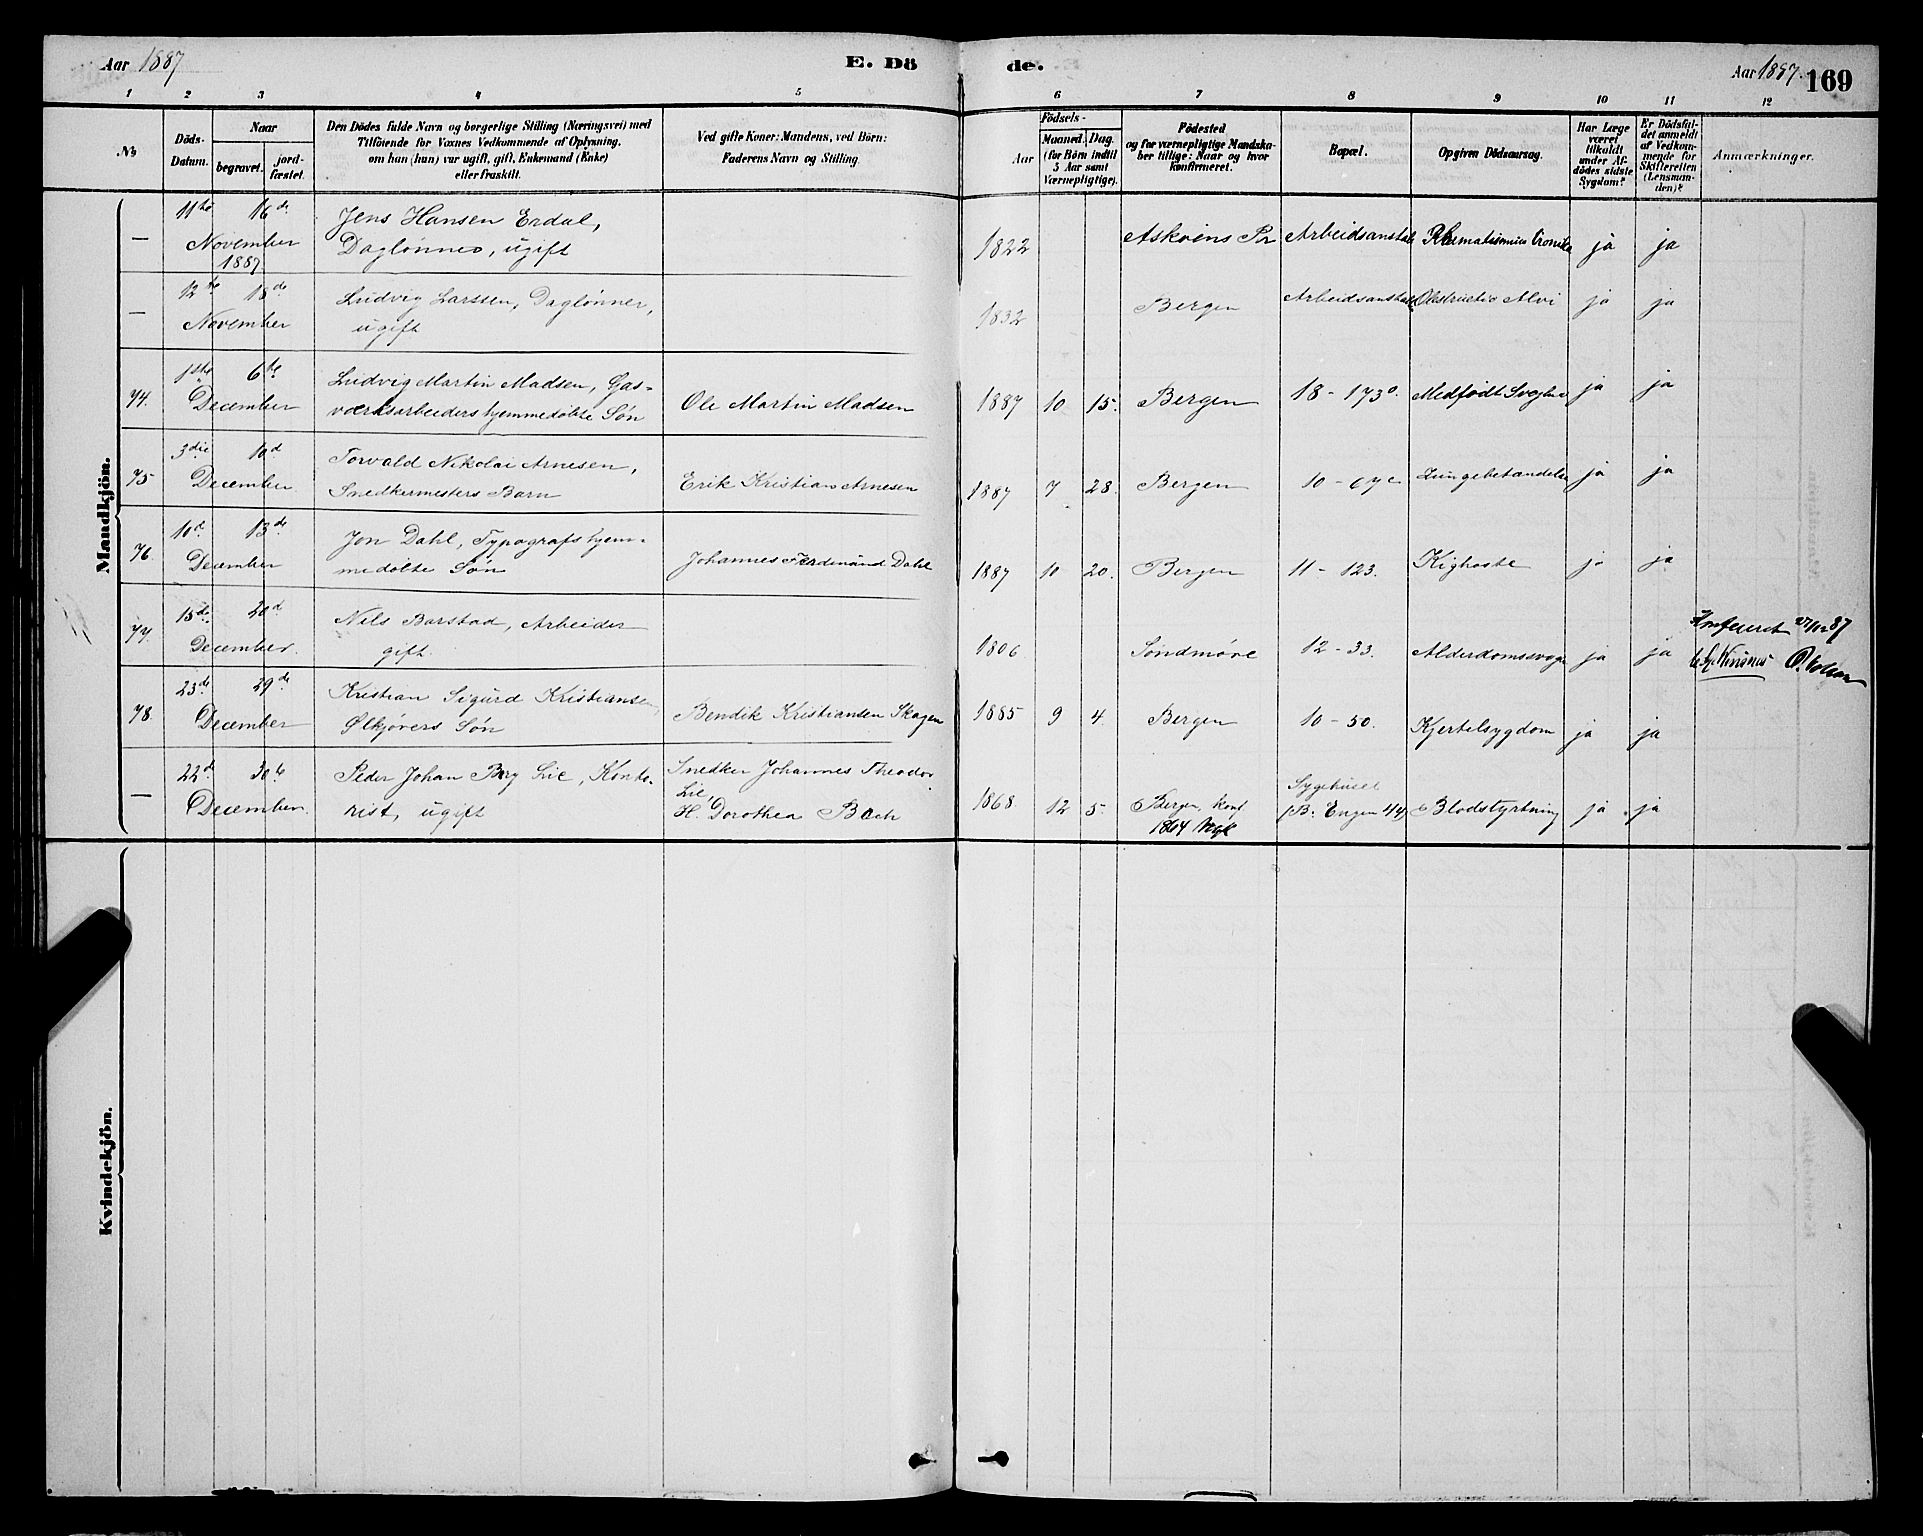 Aar 1887
E. Dö
de.
Aar 1887.
169
1 2 3 4 5 6 7 8 9 10 11 12
No
Döds-
Datum.
Naar
begravet.
jord-
fæstet.
Den Dödes fulde Navn og borgerlige Stilling (Næringsvei) med
Tilföiende for Voxnes Vedkommende af Oplysning,
om han (hun) var ugift, gift, Enkemand (Enke)
eller fraskilt.
Ved gifte Koner: Mandens, ved Börn:
Faderens Navn og Stilling.
Födsels-
Aar
Maaned. Dag.
(for Börn indtil
5 Aar samt
Værnepligtige).
Födested
og for værnepligtige Mandska-
ber tillige: Naar og hvor
konfirmeret.
Bopæl.
Opgiven Dödsaarsag.
Har Læge
været
tilkaldt
under Af-
dödes sidste
Sygdom?
Er Dödsfal-
det anmeldt
af Vedkom-
mende for
Skifteretten
(Lensman-
den)?
Anmærkninger.
Mandkjön.
— 11te 16de
November
1887
Jens Hansen Erdal,
Daglønner, ugift
1822 Askøens Pr Arbeidsanstal Rheumatismus Cronica ja ja
— 12te 18de
November
Ludvig Larssen, Daglønner,
ugift
1832 Bergen Arbeidsanstal Obstructio Alvi ja ja
74. 1ste 6te
December
Ludvig Martin Madsen, Gas-
værksarbeiders hjemmedøbte Søn
Ole Martin Madsen
1887 10 15. Bergen 18 - 173 Medfødt Svaghed ja ja
75 3die 10d
December
Torvald Nikolai Arnesen,
Snedkermesters Barn
Erik Kristian Arnesen
1887 7 28. Bergen 10 - 67 Lungebetændelse ja ja
76. 10d. 13de
December
Jon Dahl, Typografs hjem-
medøbte Søn
Johannes Ferdinand Dahl
1887 10 20. Bergen 11 - 123. Kighoste ja ja
77. 15de 20d
December.
Nils Barstad, Arbeider
gift.
1806 Søndmøre 12 - 33. Alderdomssvagh ja ja
78. 23de 29de
December
Kristian Sigurd Kristiansen,
Ølkjørers Søn
Bendik Kristiansen Skagen
1885 9 4. Bergen 10 - 50. Kjertelsygdom ja ja
— 22d 30te
December.
Peder Johan Berg Lie, Konto-
rist, ugift
Snedker Johannes Theodor
Lie,
H. Dorothea Bach
1868 12 5. Bergen, konf
Sygehuset
(B: Engen 44) Blodstyrtning ja ja
Kvindekjön.